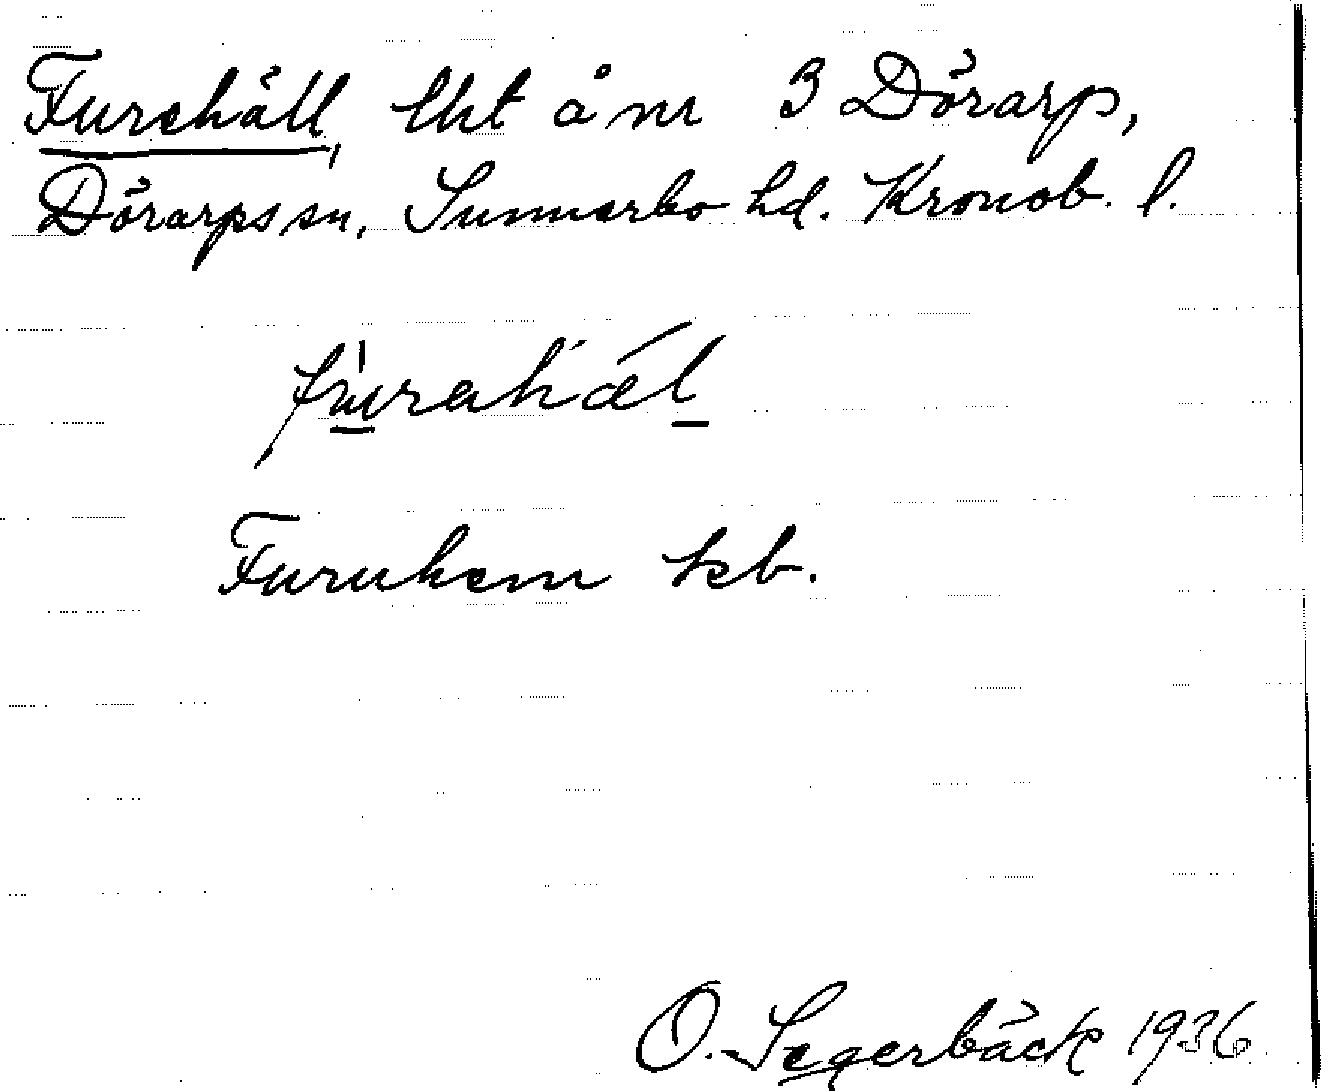 Furehäll, lht å nr 3 Dörarp,
Dörarps sn, Sunnerbo hd. Kronob. l.
Furuhem kb.
O. Segerbäck 1936